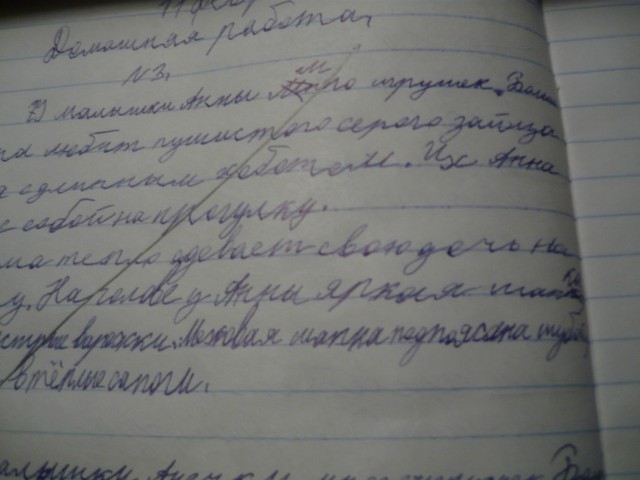 11 фев
Домашняя работа.
№3.
У малышки Анны много игрушек. Боль
на любит пушистого серого зайца
а с длинным хоботом. Их Анна
с собой на прогулку.
ма тепло одевает свою дочь на
у. На голове у Анны яркая шапка
стрые варежки. Меховая шапка подпоясана шуб
в тёплые сапоги.
алышки Анны